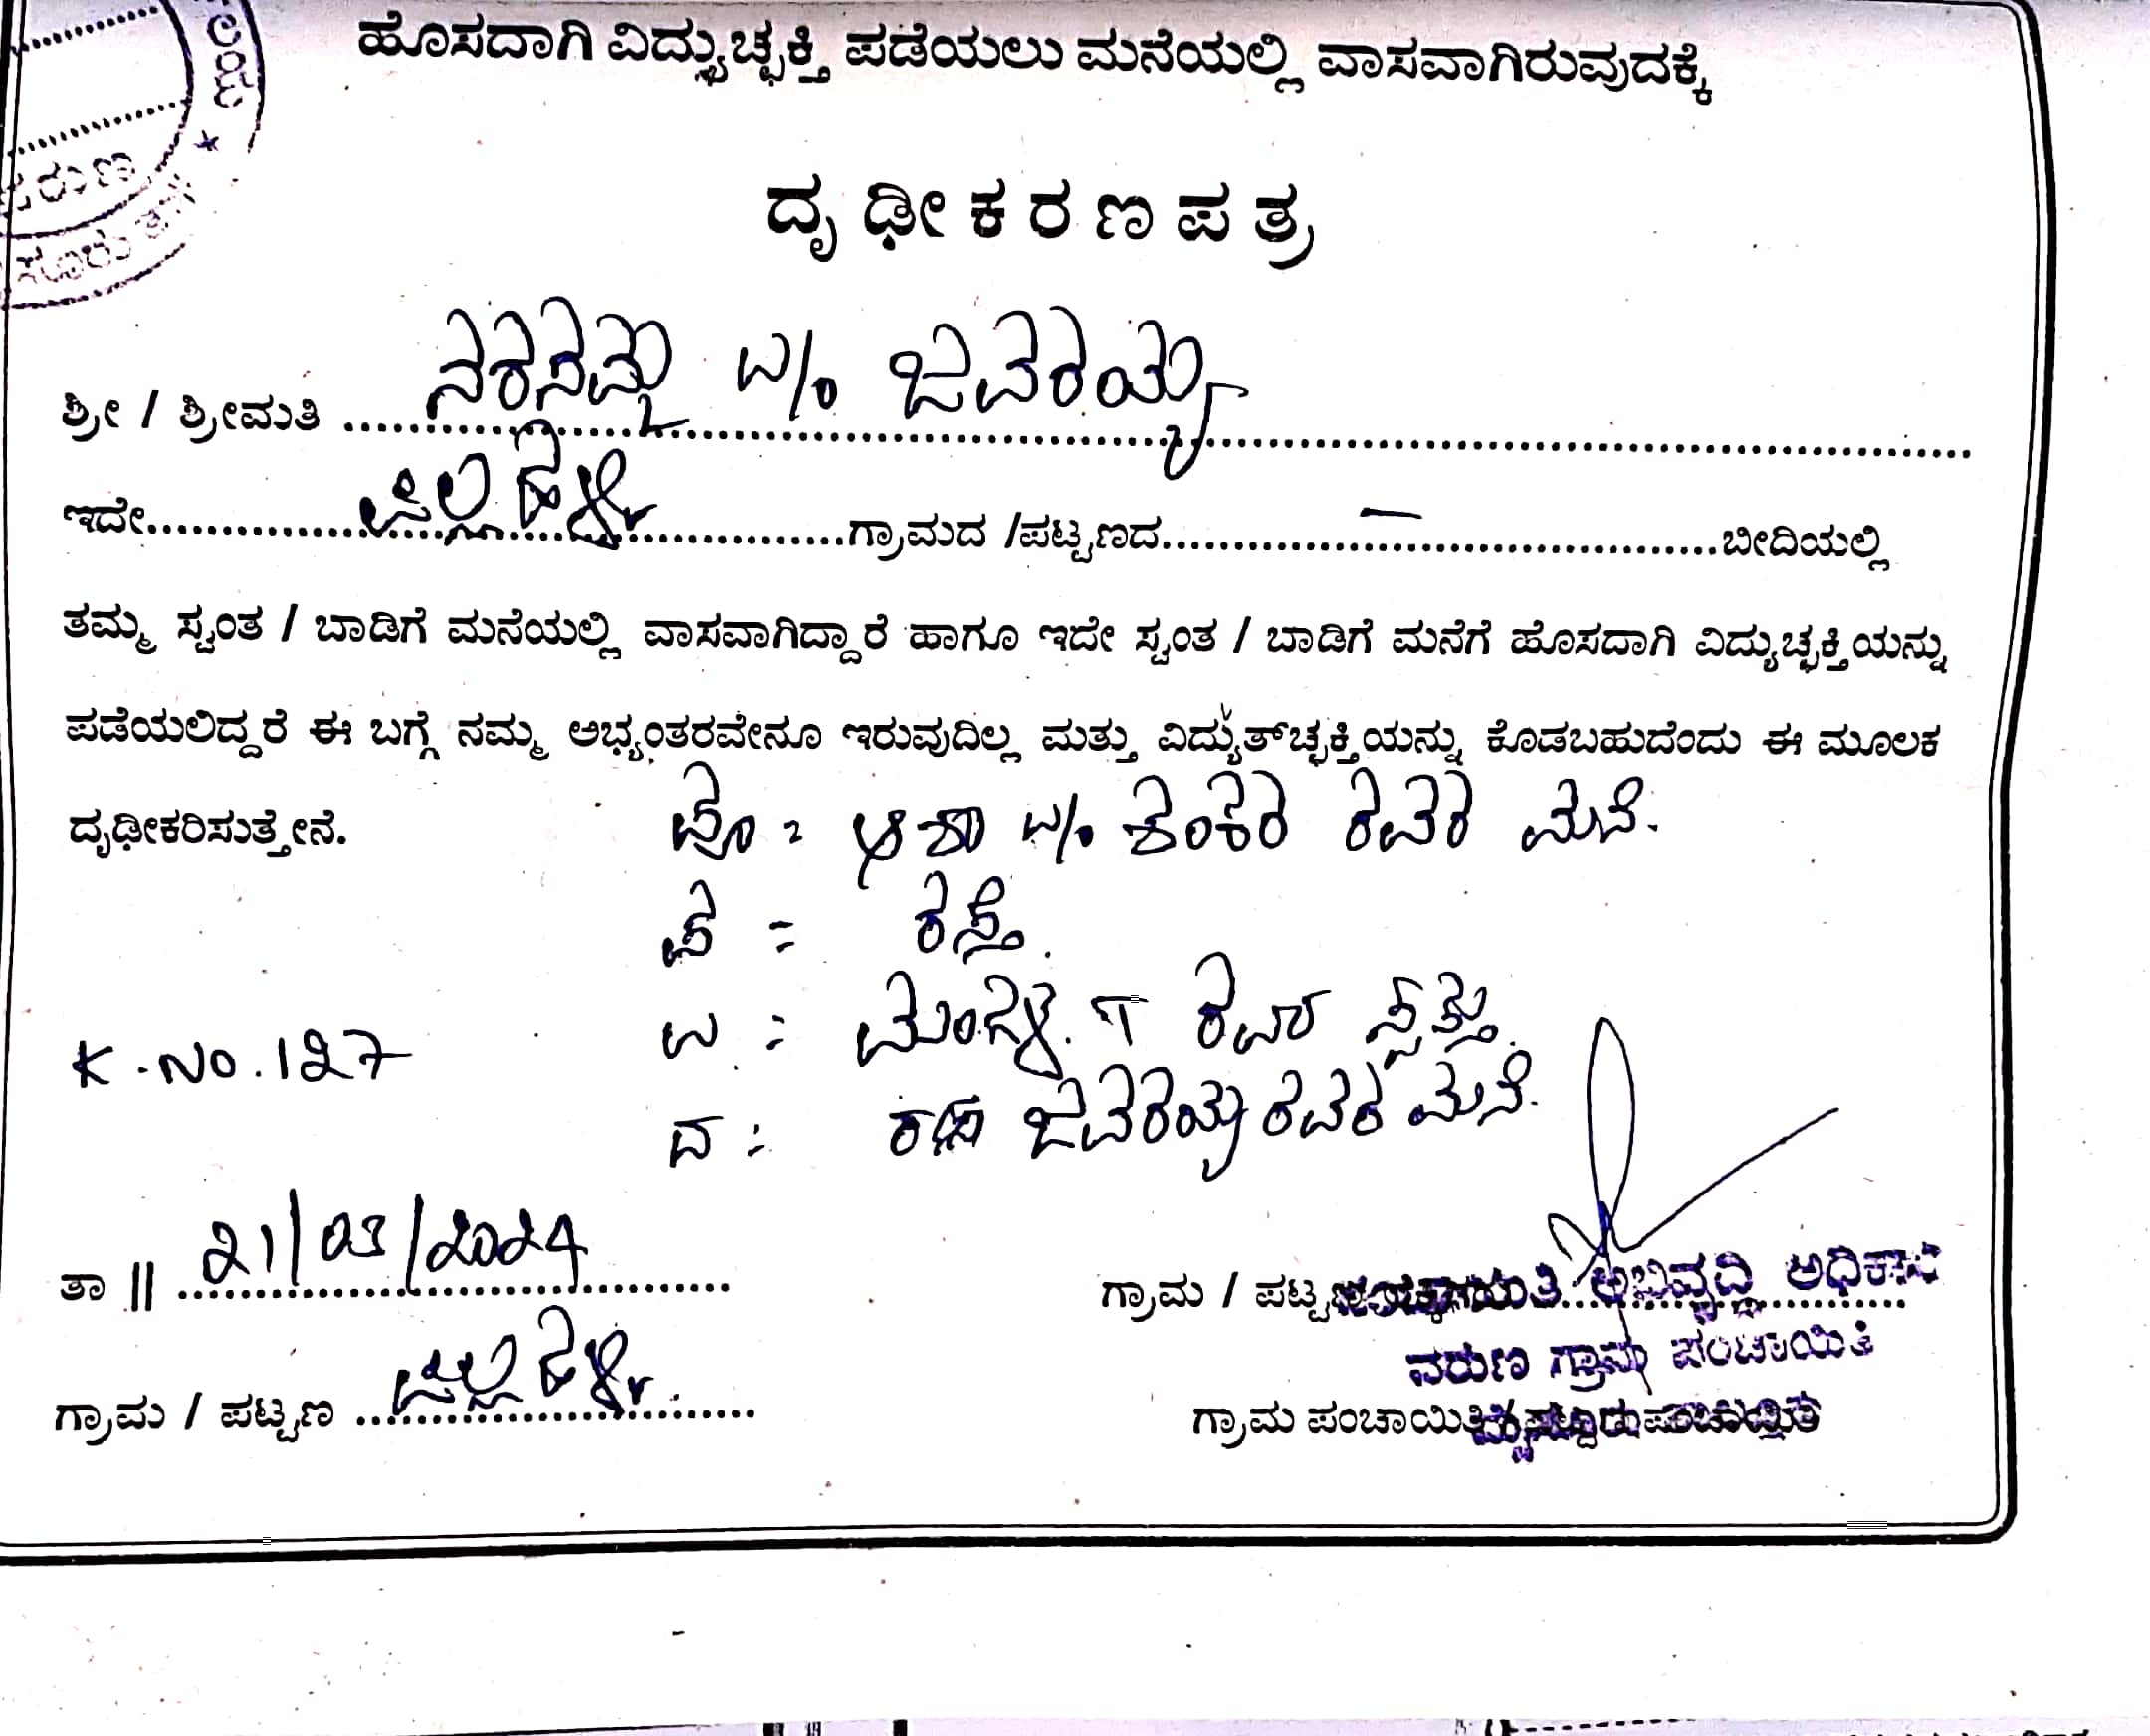 ಹೊಸದಾಗಿ ವಿದ್ಯುಚ್ಛಕ್ತಿ ಪಡೆಯಲು ಮನೆಯಲ್ಲಿ ವಾಸವಾಗಿರುವುದಕ್ಕೆ
ದೃಢೀಕರಣಪತ್ರ
ಶ್ರೀ / ಶ್ರೀಮತಿ ನರಸಮ್ಮ W/o ಜವರಯ್ಯ
ಇದೇ ಗ್ರಾಮದ /ಪಟ್ಟಣದ — ಬೀದಿಯಲ್ಲಿ
ತಮ್ಮ ಸ್ವಂತ / ಬಾಡಿಗೆ ಮನೆಯಲ್ಲಿ ವಾಸವಾಗಿದ್ದಾರೆ ಹಾಗೂ ಇದೇ ಸ್ವಂತ / ಬಾಡಿಗೆ ಮನೆಗೆ ಹೊಸದಾಗಿ ವಿದ್ಯುಚ್ಛಕ್ತಿಯನ್ನು
ಪಡೆಯಲಿದ್ದರೆ ಈ ಬಗ್ಗೆ ನಮ್ಮ ಅಭ್ಯಂತರವೇನೂ ಇರುವುದಿಲ್ಲ ಮತ್ತು ವಿದ್ಯುತ್‌ಚ್ಛಕ್ತಿಯನ್ನು ಕೊಡಬಹುದೆಂದು ಈ ಮೂಲಕ
ದೃಢೀಕರಿಸುತ್ತೇನೆ. ಪೂ = ಆಶಾ W/o ಶಂಕರ ರವರ ಮನೆ.
ಪ = ರಸ್ತೆ.
ಉ = ರವರ ಸ್ವತ್ತು.
K.No.127
ದ = ಜವರಯ್ಯ ರವರ ಮನೆ.
ತಾ || 21/03/2024
ಗ್ರಾಮ / ಪಟ್ಟಣ ಪಂಚಾಯಿತಿ ಅಭಿವೃದ್ಧಿ ಅಧಿಕಾರಿ
ವರುಣ ಗ್ರಾಮ ಪಂಚಾಯಿತಿ
ಗ್ರಾಮ / ಪಟ್ಟಣ
ಗ್ರಾಮ ಪಂಚಾಯಿತಿ